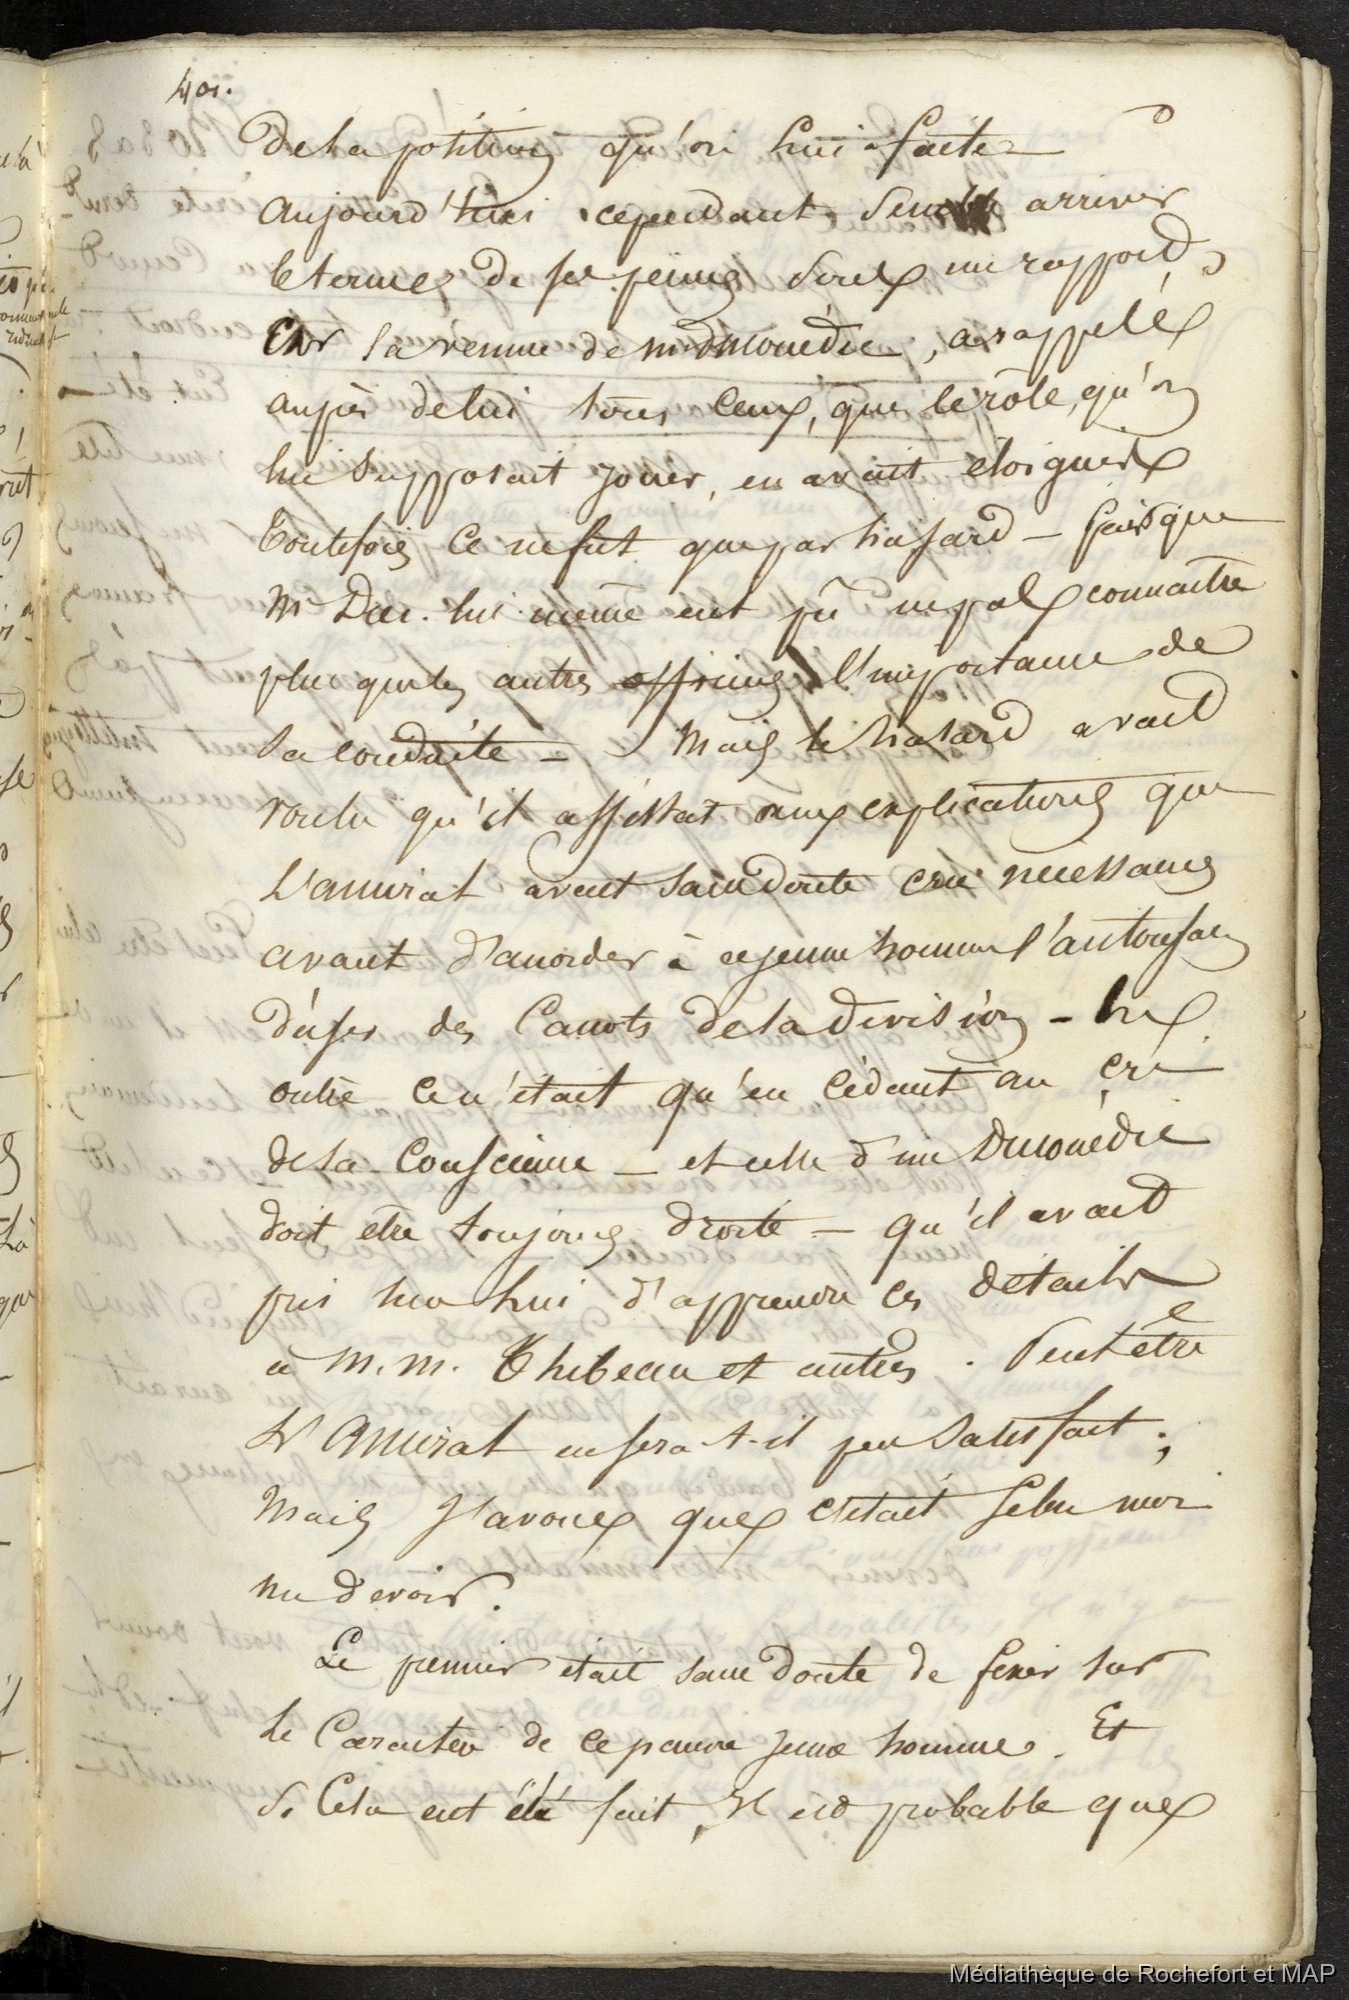 401.
De la position qu'on lui a faite
aujourd'hui cependant semble arriver
le terme de ses peines sous un rapport,
Car la venue de m. Dulouédic, a rappelé
auprès de lui tous ceux, que le rôle, qu'on
lui supposait jouer, en avait éloignés
Toutefois ce ne fut que par hasard – puisque
Mr Dul. lui même eut pû ne pas connaître
plus que les autres officiers l'importance de
sa conduite – Mais le hasard avait
voulu qu'il assistat aux explications que
L'amiral avait sans doute cru nécessaires
avant d'accorder à ce jeune homme l'autorisaon
d'user des Canots de la division –
outre ce n'était qu'en cédant au cri
de sa Conscience – et celle d'un Dulouédic
doit être toujours droite – qu'il avait
pris sur lui d'apprendre ces détails
à M. M. Thibeau et autres. Peut être
L'Amiral en sera-t-il peu satisfait;
Mais J'avoue que c'était selon moi
un devoir.
Le premier était sans doute de fixer sur
le Caractère de ce pauvre jeune homme. Et
si Cela eut été fait, Il est probable que
Médiathèque de Rochefort et MAP